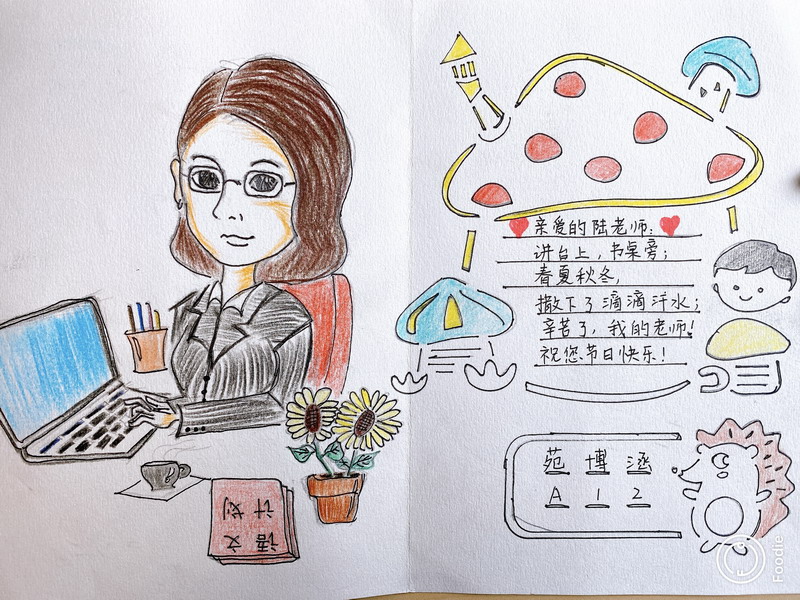 语文
计划
亲爱的陆老师:
讲台上,书桌旁;
春夏秋冬,
撒下了滴滴汗水;
辛苦了,我的老师!
祝您节日快乐!
范博涵
A12
Foodie